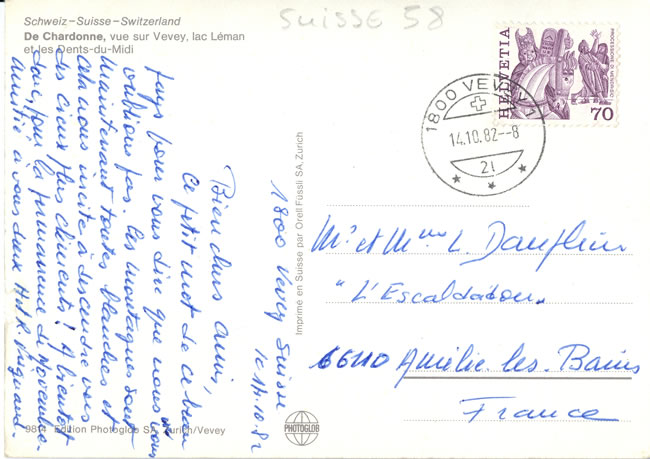 SUISSE 58
Schweiz – Suisse – Switzerland
De Chardonne, vue sur Vevey, lac Léman
et les Dents-du-Midi
HELVETIA
PROCESSIONE DI MENDRISIO
70
1800 VEVEY 1
14.10.82--8
21
1800 Vevey Suisse
le 14.10.82
Bien chers amis,
Ce petit mot de ce beau
pays pour vous dire que nous ne vous
oublions pas. Les montagnes sont
maintenant toutes blanches et
cela nous incite à descendre vers
des cieux plus cléments! A bientôt
donc, pour la permanence de Novembre.
amitié à vous deux
Imprimé en Suisse par Orell Füssli SA, Zurich
Mr et Mme L. Daufleur
"L'Escaldadou"
66110 Amélie-les-Bains
France
PHOTOGLOB
9814 Edition Photoglob SA, Zurich/Vevey